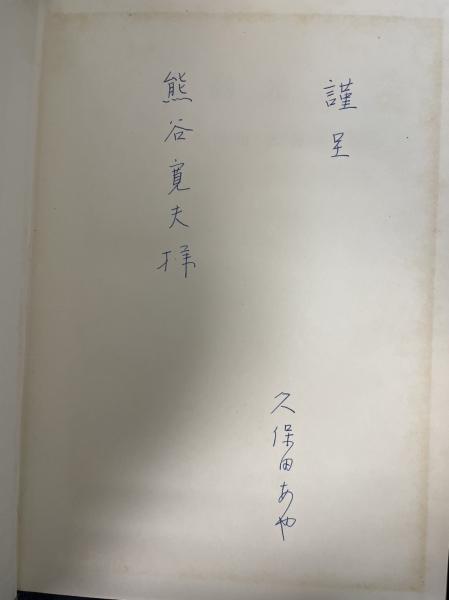 謹呈
久保田あや
熊谷寛夫様